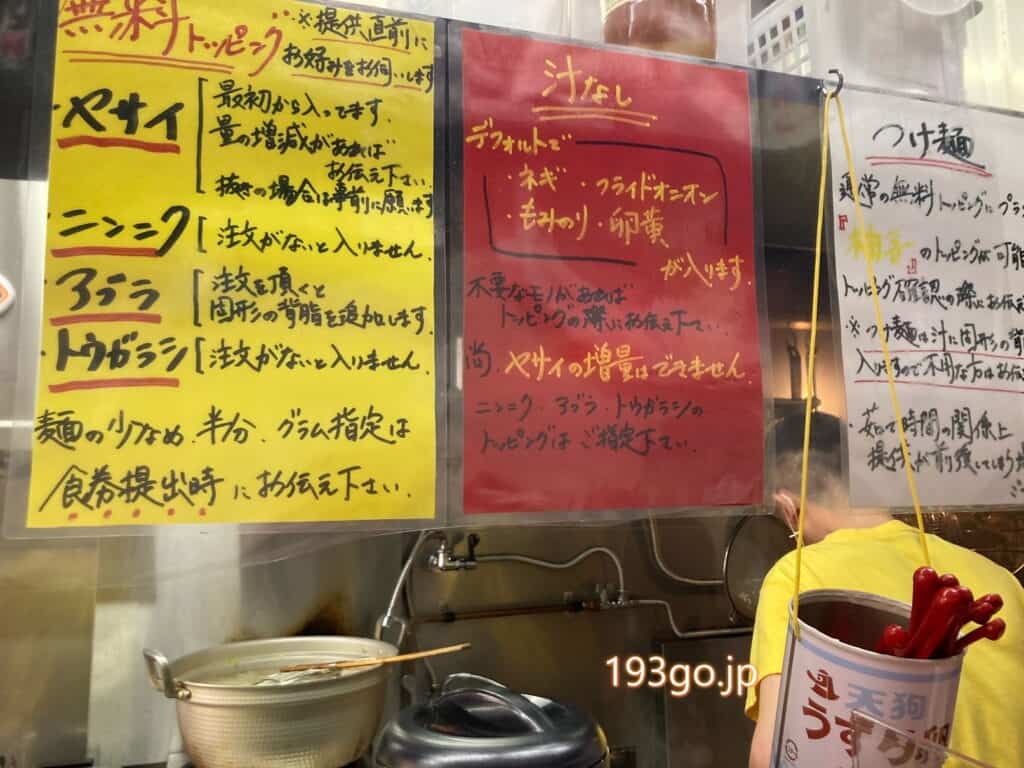 無料トッピング
※提供直前に
お好みをお伺いします
ヤサイ
最初から入ってます.
量の増減があれば
お伝え下さい.
抜きの場合は事前に願います
ニンニク
注文がないと入りません.
アブラ
注文を頂くと
固形の背脂を追加します.
トウガラシ
注文がないと入りません.
麺の少なめ.半分.グラム指定は
食券提出時にお伝え下さい.
汁なし
デフォルトで
・ネギ ・フライドオニオン
・もみのり ・卵黄
が入ります.
不要なモノがあれば
トッピングの際にお伝え下さい.
尚.ヤサイの増量はできません.
ニンニク.アブラ.トウガラシの
トッピングはご指定下さい.
つけ麺
通常の無料トッピングにプラ
『柚子』のトッピングが可能
トッピング確認の際にお伝え
※つけ麺は汁に固形の背
入りますので不用な方はお伝
・茹で時間の関係上
提供が前後してしまう
193go.jp
天狗
うずら